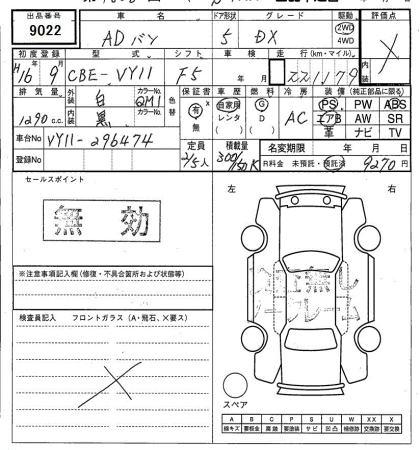 出品番号 車名 ドア形状 グレード 駆動 評価点
9022 ADバン 5 DX 2WD 4WD
初度登録 型式 シフト 車検 走行(km・マイル)
H16年9月 CBE-VY11 F5 年 月
排気量 外装 白 カラーNo. QM1 色替 保証書 車歴 燃料 冷房 装備(純正部品に限る)
1290c.c. 内装 黒 カラーNo. 有 無 自家用 レンタ ( ) G D ( ) AC PS PW ABS
エアB AW SR
革 ナビ TV
車台No VY11-296474
登録No 定員 2/5人 積載量 300/150K 名変期限 年 月 日
R料金 未預託・預託済 9270円
セールスポイント 左 右
無効
※注意事項記入欄(修復・不具合箇所および状態等)
検査員記入 フロントガラス(A・飛石、X要ス)
スペア
A B C P S U W X XX X
線キズ